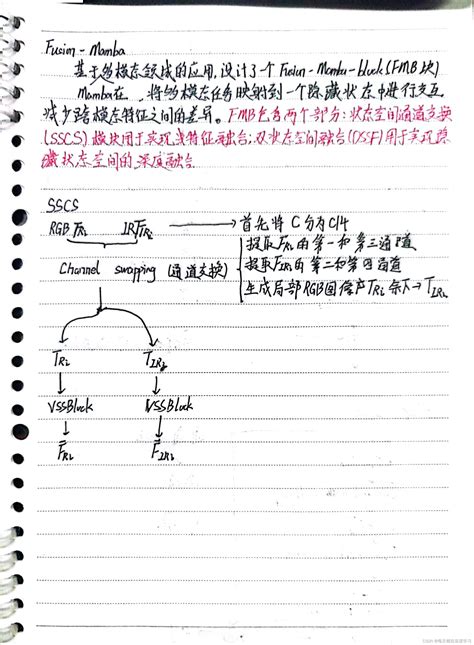 Fusion-Mamba
基于多模态领域的应用,设计了个Fusion-Mamba-block(FMB块)
Mamba在,将多模态任务映射到一个隐藏状态中进行交互
减少跨模态特征之间的差异。FMB包含两个部分:状态空间通道交换
(SSCS)模块用于实现浅特征融合;双状态空间融合(DSSF)用于实现隐
藏状态空间的深度融合
SSCS
RGB FRi IR FIRi → 首先将C分为C/4
提取FRi的第一和第三通道
Channel swapping (通道交换) 提取FIRi的第二和第四通道
生成局部RGB图像TRi 余下→TIRi
TRi TIRi
VSSBlock VSSBlock
F̃Ri F̃IRi